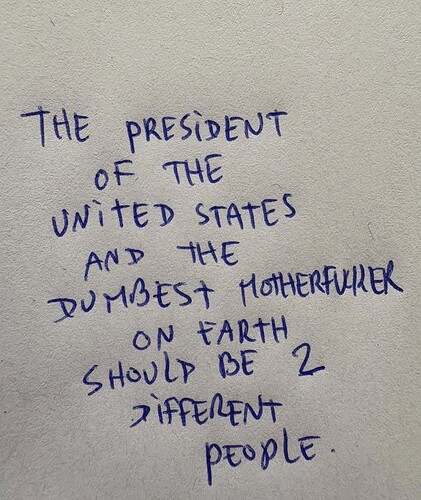 THE PRESIDENT
OF THE
UNITED STATES
AND THE
DUMBEST MOTHERFUCKER
ON EARTH
SHOULD BE 2
DIFFERENT
PEOPLE.